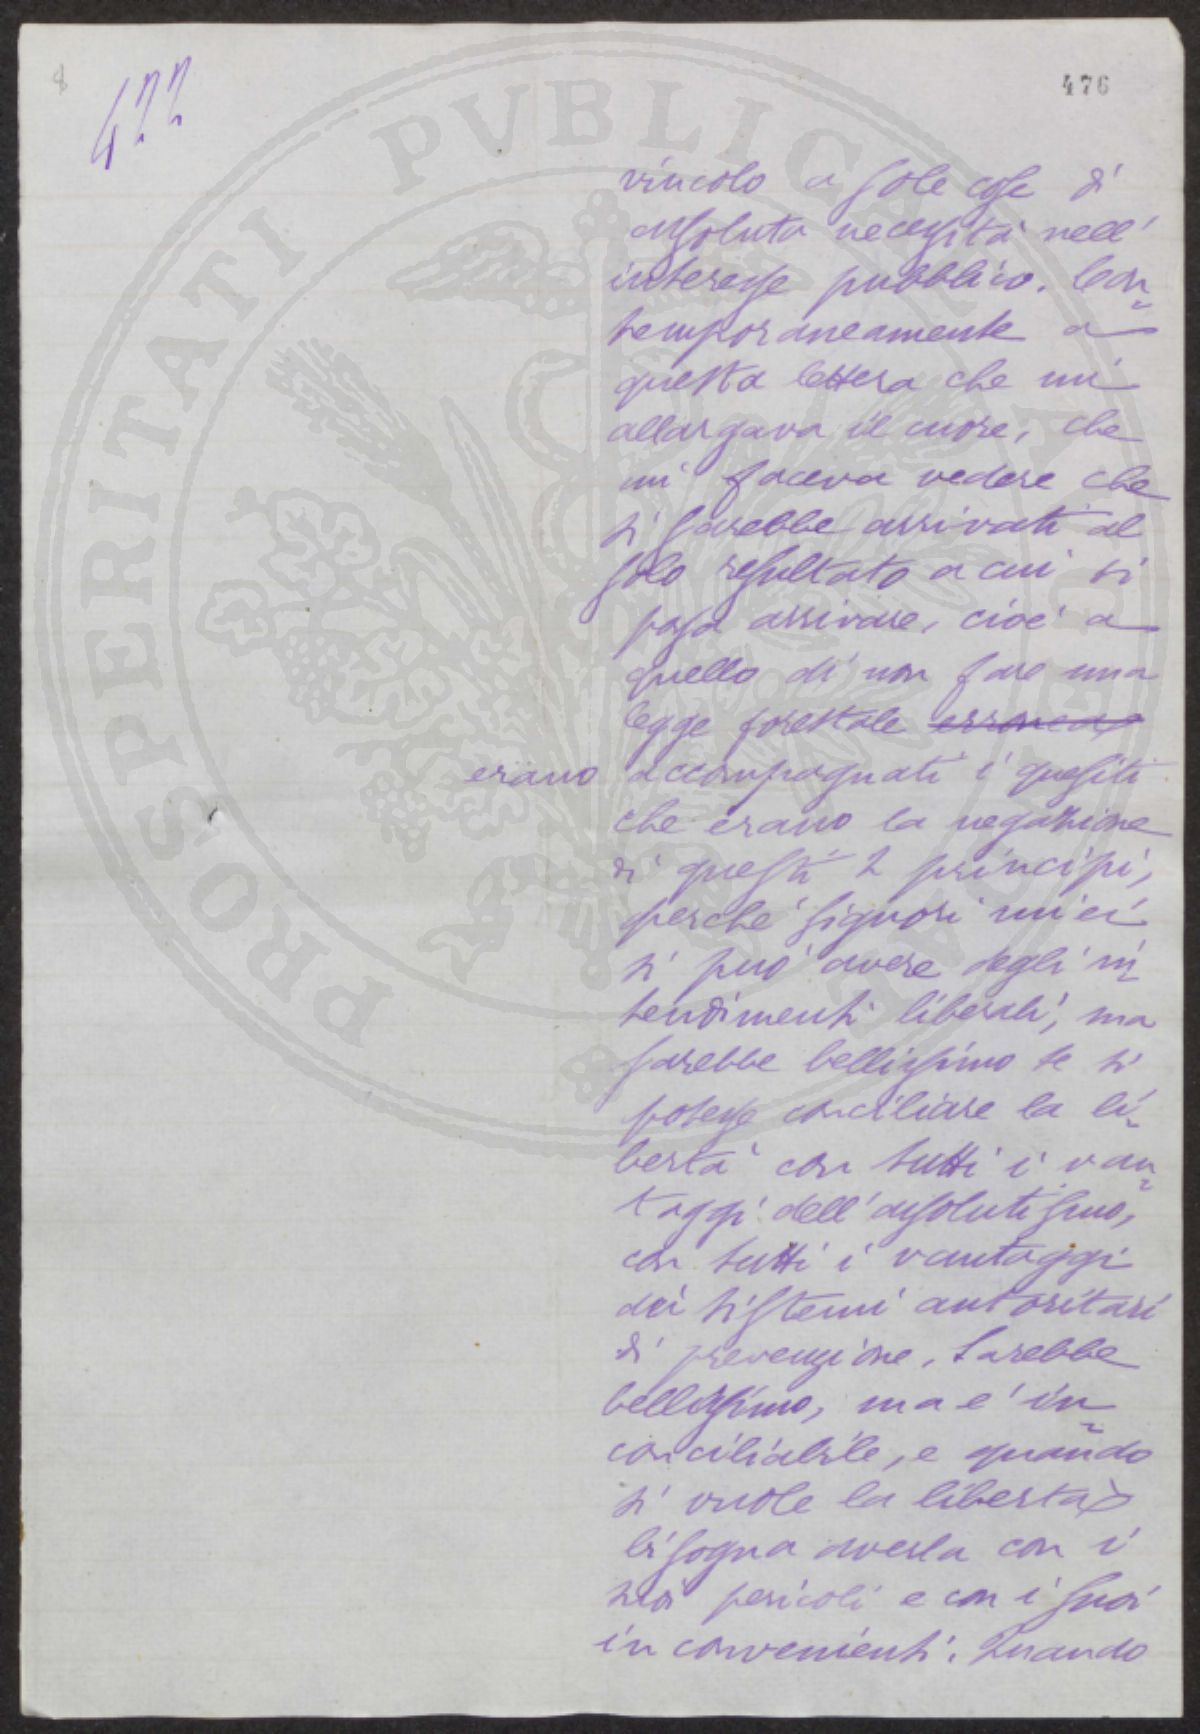 8
422
476
vincolo a sole cose di
assoluta necessità nell'
interesse pubblico. Con-
temporaneamente a
questa lettera che mi
allargava il cuore, che
mi faceva vedere che
si sarebbe arrivati al
solo resultato a cui si
possa arrivare, cioè a
quello di non fare una
legge forestale erronea
erano accompagnati i quesiti
che erano la negazione
di questi 2 principi,
perchè signori miei
si può avere degli in-
tendimenti liberali, ma
sarebbe bellissimo se si
potesse conciliare la li-
bertà con tutti i van-
taggi dell'assolutismo,
con tutti i vantaggi
dei sistemi autoritari
di prevenzione. Sarebbe
bellissimo, ma è in-
conciliabile, e quando
si vuole la libertà
bisogna averla con i
suoi pericoli e con i suoi
inconvenienti. Quando
PUBLICAE
PROSPERITATI